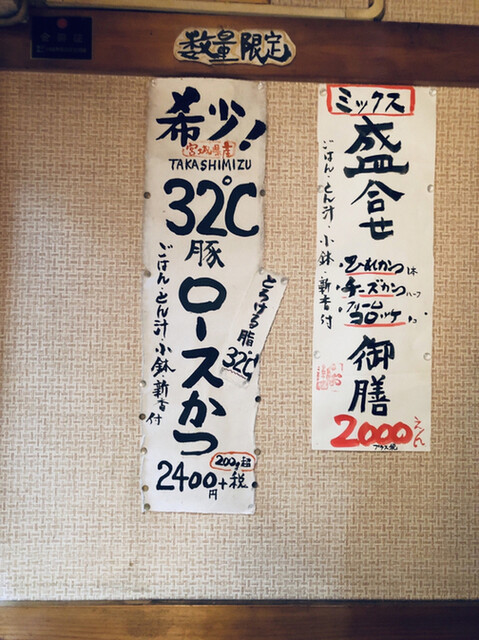 数量限定
希少!
宮城県産
TAKASHIMIZU
32℃
豚
ロースかつ
ごはん・とん汁・小鉢・新香付
とろける脂
32℃
200g超
2400円+税
ミックス
盛合せ
ごはん・とん汁・小鉢・新香付
・ひれかつ1本
・チーズかつハーフ
・クリームコロッケ1コ
御膳
2000えん
プラス税